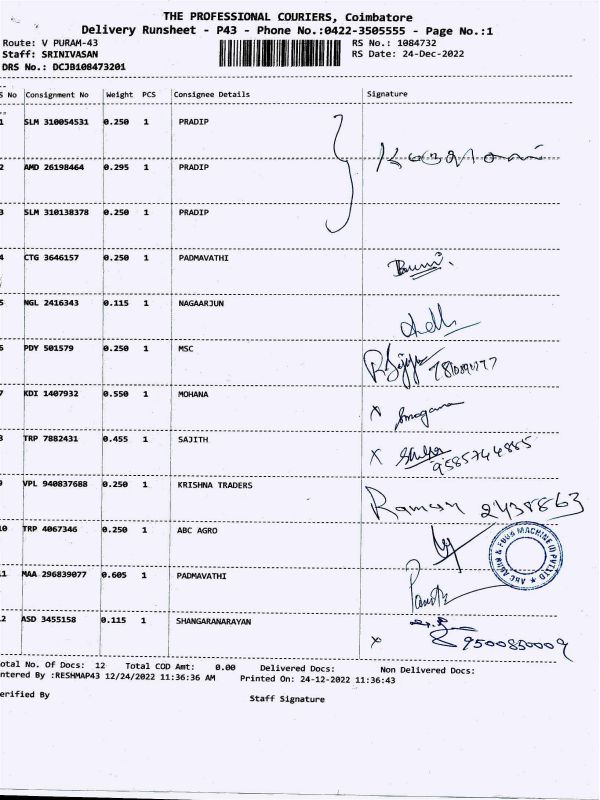 THE PROFESSIONAL COURIERS, Coimbatore
Delivery Runsheet - P43 - Phone No.:0422-3505555 - Page No.:1
Route: V PURAM-43 RS No.: 1084732
Staff: SRINIVASAN RS Date: 24-Dec-2022
DRS No.: DCJB108473201
S No Consignment No Weight PCS Consignee Details Signature
1 SLM 310054531 0.250 1 PRADIP
2 AMD 26198464 0.295 1 PRADIP
3 SLM 310138378 0.250 1 PRADIP
4 CTG 3646157 0.250 1 PADMAVATHI
5 NGL 2416343 0.115 1 NAGAARJUN
6 PDY 501579 0.250 1 MSC
7 KDI 1407932 0.550 1 MOHANA X
8 TRP 7882431 0.455 1 SAJITH X
9585744885
9 VPL 940837688 0.250 1 KRISHNA TRADERS Raman 2438863
10 TRP 4067346 0.250 1 ABC AGRO
ABC AGRO & FOOD MACHINE (I) PVT LTD
11 MAA 296839077 0.605 1 PADMAVATHI
12 ASD 3455158 0.115 1 SHANGARANARAYAN
X 9500850009
otal No. Of Docs: 12 Total COD Amt: 0.00 Delivered Docs: Non Delivered Docs:
ntered By :RESHMAP43 12/24/2022 11:36:36 AM Printed On: 24-12-2022 11:36:43
erified By Staff Signature